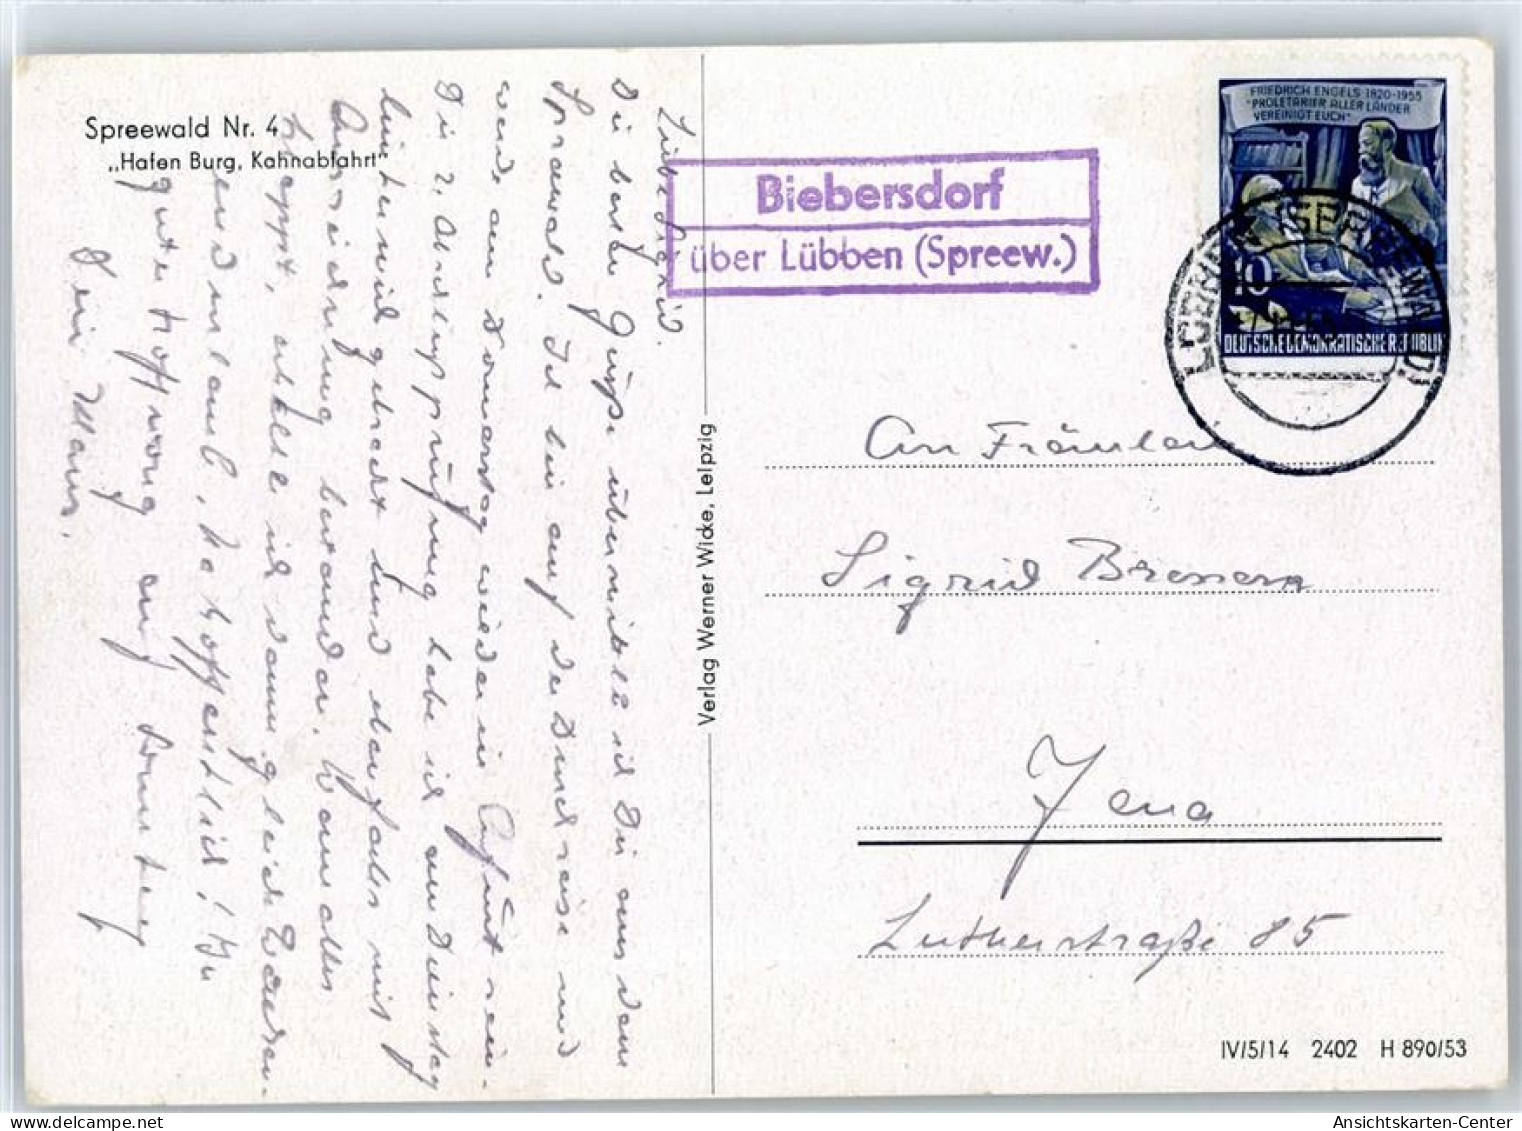 Spreewald Nr. 4
„Hafen Burg, Kahnabfahrt"
Liebe Sigrid.
Die besten Grüße übermittle ich Dir aus dem
Spreewald. Ich bin auf der Durchreise und
werde am Donnerstag wieder in Erfurt sein.
Die 2. Abschlußprüfung habe ich am Dienstag
hinter mich gebracht und ebenfalls mit
Auszeichnung bestanden. Wenn alles
klappt, erhalte ich dann gleich
, hoffentlich! In
guter Hoffnung auf
Dein Hans.
Verlag Werner Wicke, Leipzig
Biebersdorf
über Lübben (Spreew.)
FRIEDRICH ENGELS 1820-1955
"PROLETARIER ALLER LÄNDER
VEREINIGT EUCH"
10
DEUTSCHE DEMOKRATISCHE REPUBLIK
LÜBBEN (SPREEWALD)
An Fräulein
Sigrid
Jena
Lutherstraße 85
IV/5/14 2402 H 890/53
Ansichtskarten-Center